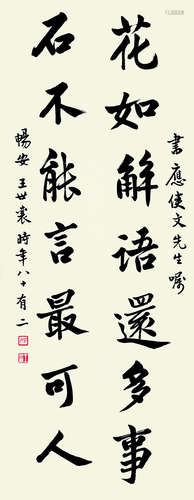 書應文先生囑
花如解語還多事
石不能言最可人
暢安 王世襄時年八十有二